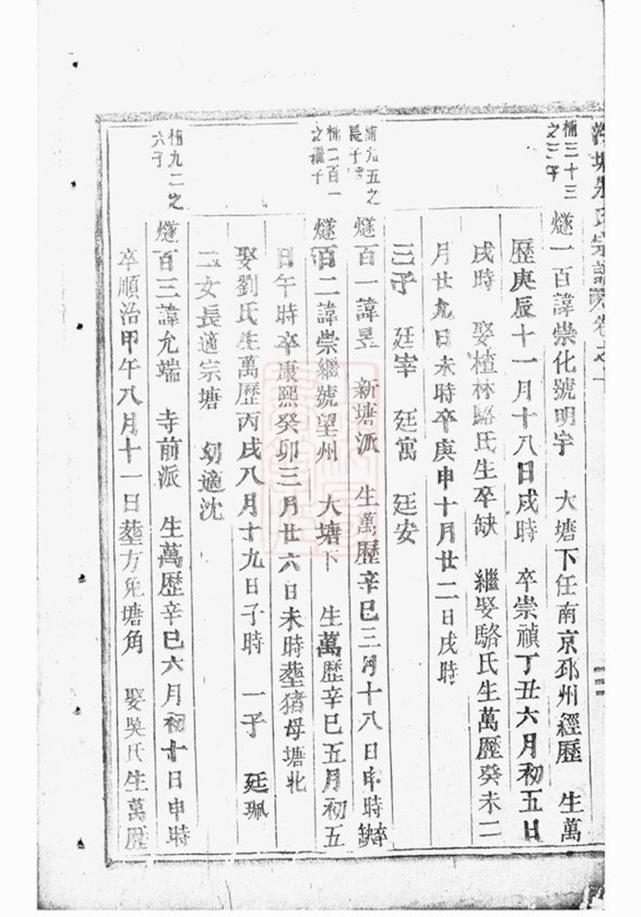 氏宗譜 卷之十
楠三十三
之三子
燧一百諱崇化號明宇 大塘下任南京邳州經歷 生萬
歷庚辰十一月十八日戌時 卒崇禎丁丑六月初五日
戌時 娶楂林駱氏生卒缺 繼娶駱氏生萬歷癸未二
月廿九日未時卒庚申十月廿二日戌時
三子 廷宰 廷寓 廷安
楠九五之
長子
燧百一諱昱 新塘派 生萬歷辛巳三月十八日申時缺
楠二百一
之繼子
燧百二諱崇繼號望州 大塘下 生萬歷辛巳五月初五
日午時卒康熙癸卯三月廿六日未時塟猪母塘北
娶劉氏生萬歷丙戌八月十九日子時 一子 廷珮
二女長適宗塘 幼適沈
楠九二之
六子
燧百三諱允端 寺前派 生萬歷辛巳六月初十日申時
卒順治甲午八月十一日塟方兒塘角 娶吳氏生萬歷